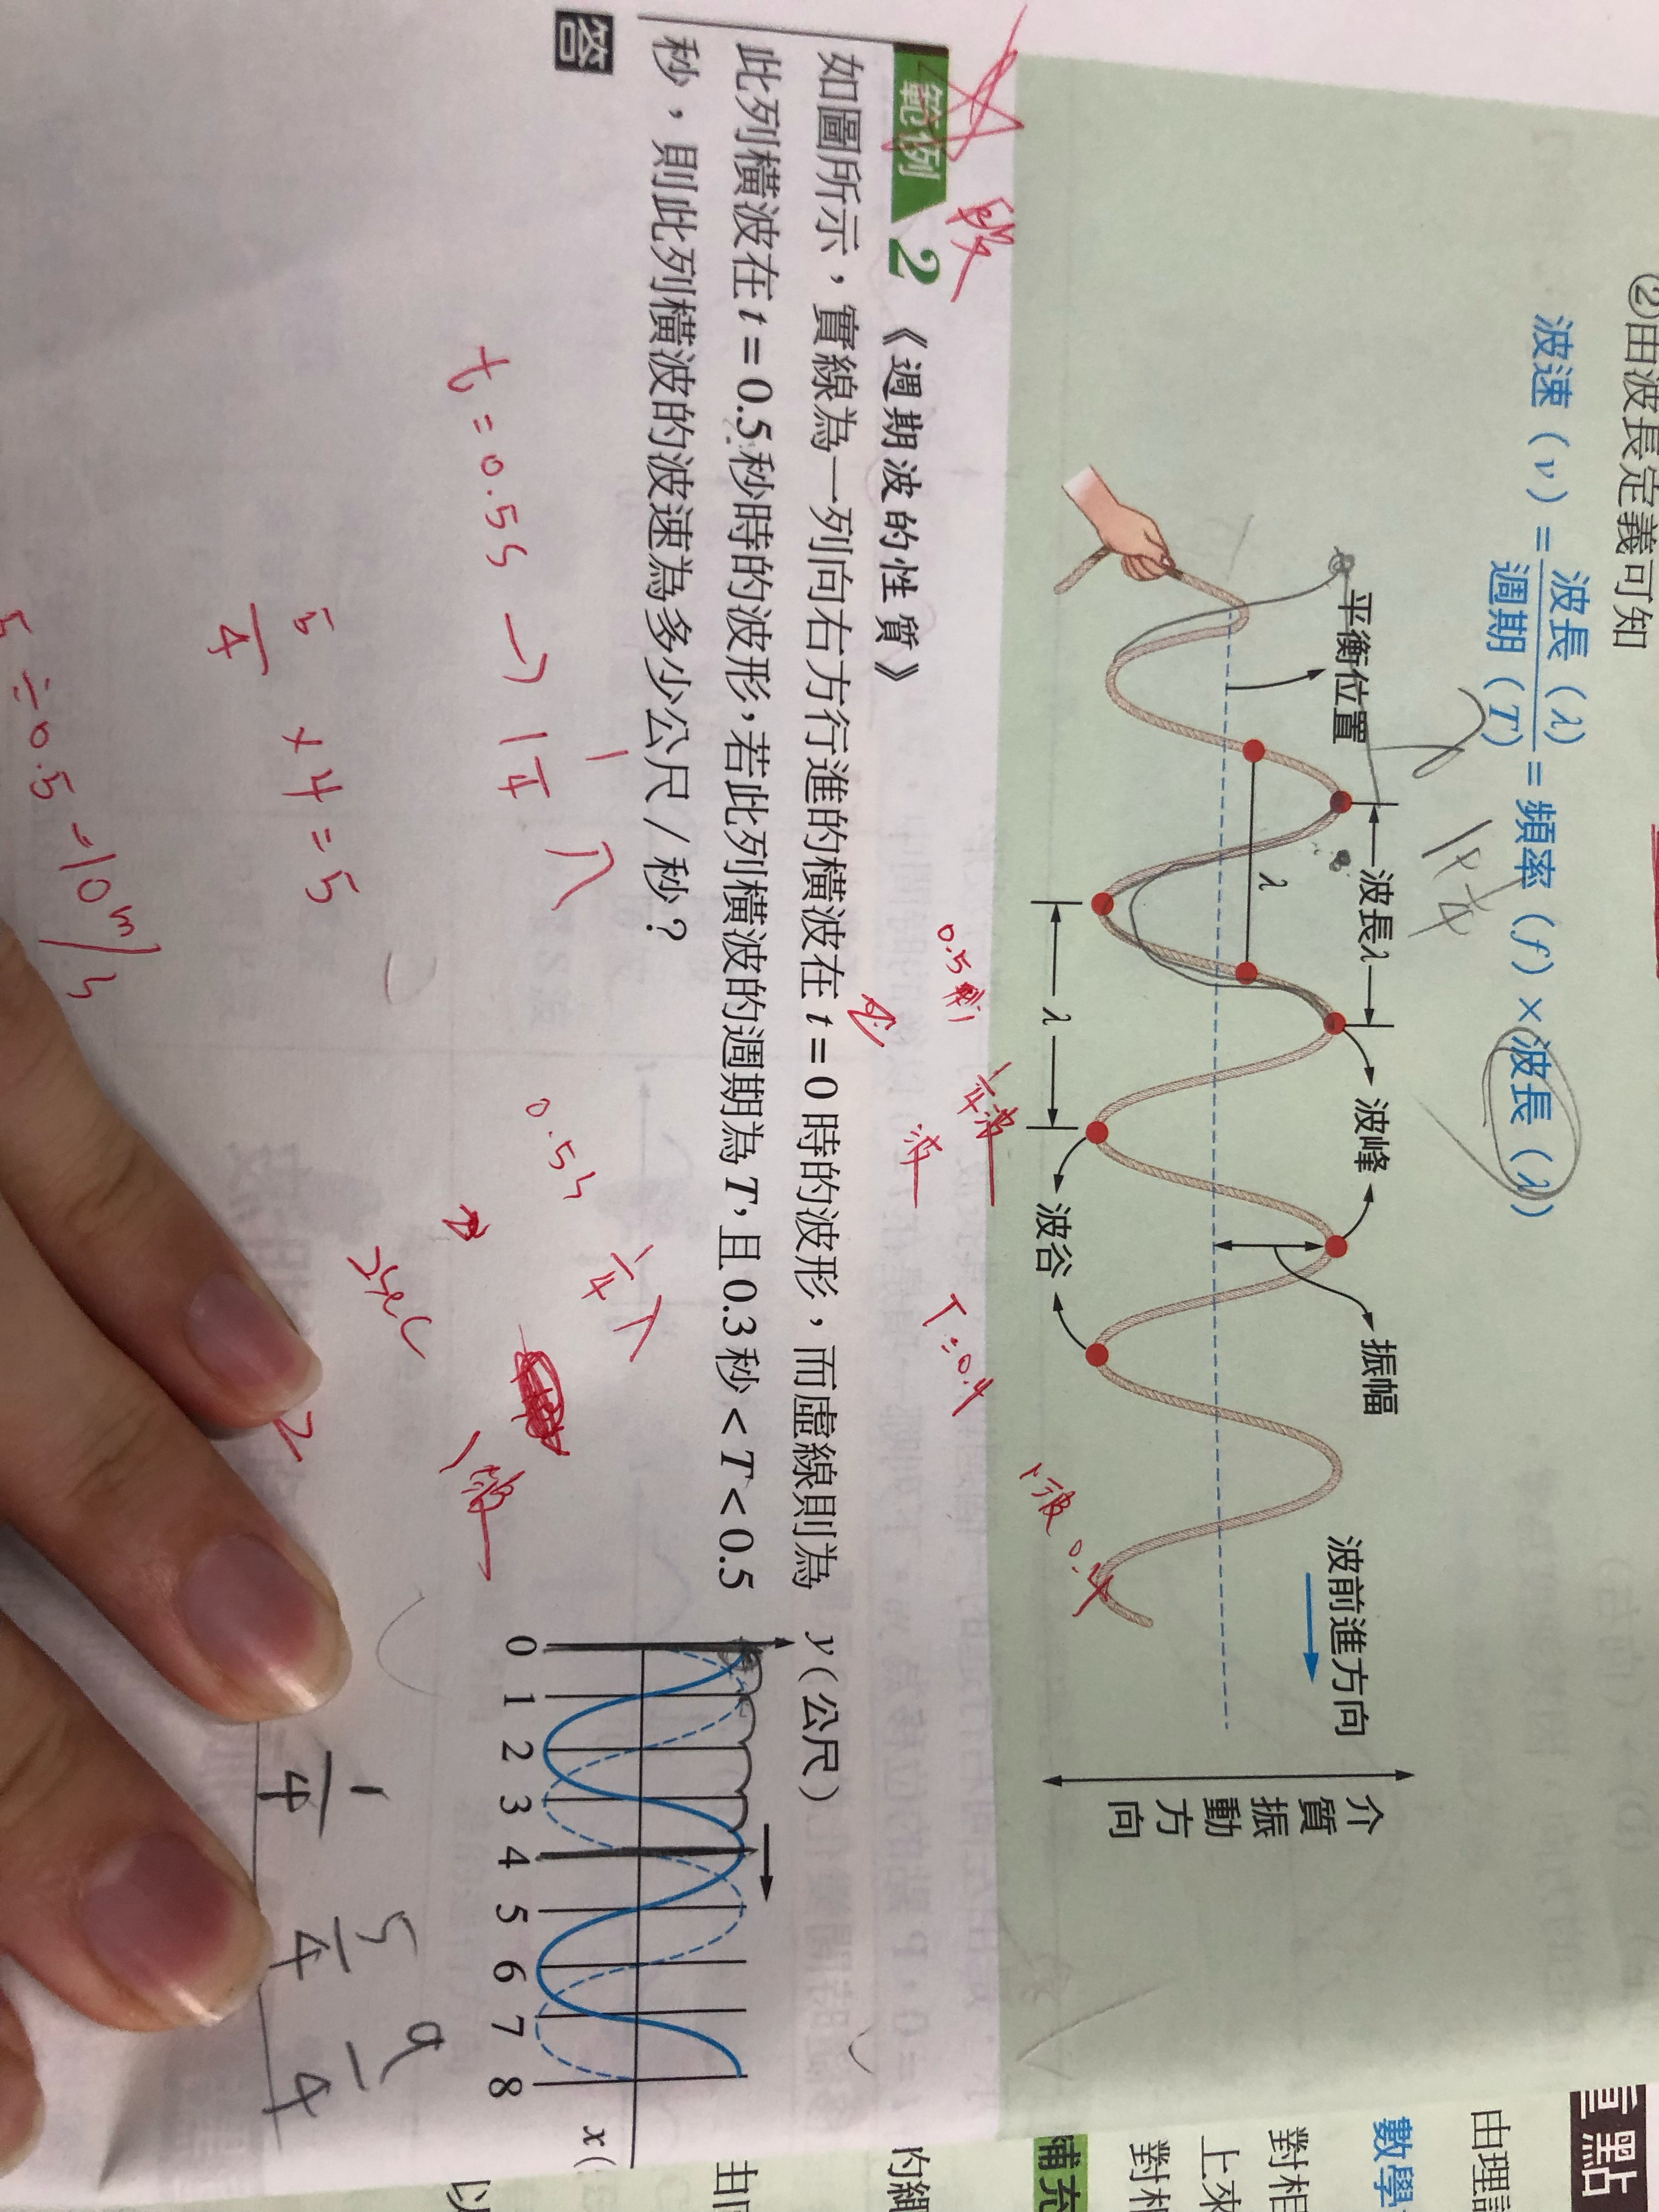 ②由波長定義可知
波速（v）= 波長（λ）/ 週期（T）= 頻率（f）× 波長（λ）
平衡位置
波長λ
波峰
振幅
波前進方向
λ
λ
波谷
介質振動方向
範例 2 《週期波的性質》
如圖所示，實線為一列向右方行進的橫波在 t = 0 時的波形，而虛線則為
此列橫波在 t = 0.5 秒時的波形，若此列橫波的週期為 T，且 0.3 秒 < T < 0.5
秒，則此列橫波的波速為多少公尺／秒？
答
y（公尺）
0 1 2 3 4 5 6 7 8
x（
t = 0.5s → 1 1/4 λ
5/4 × 4 = 5
5 ÷ 0.5 = 10 m/s
0.5s
1/4 λ
1波
0.5秒
1/4波
T = 0.4
1波 0.4
1/4 5/4 9/4
重點
由理
數學
對相
上來
對相
補充
的繩
由
以